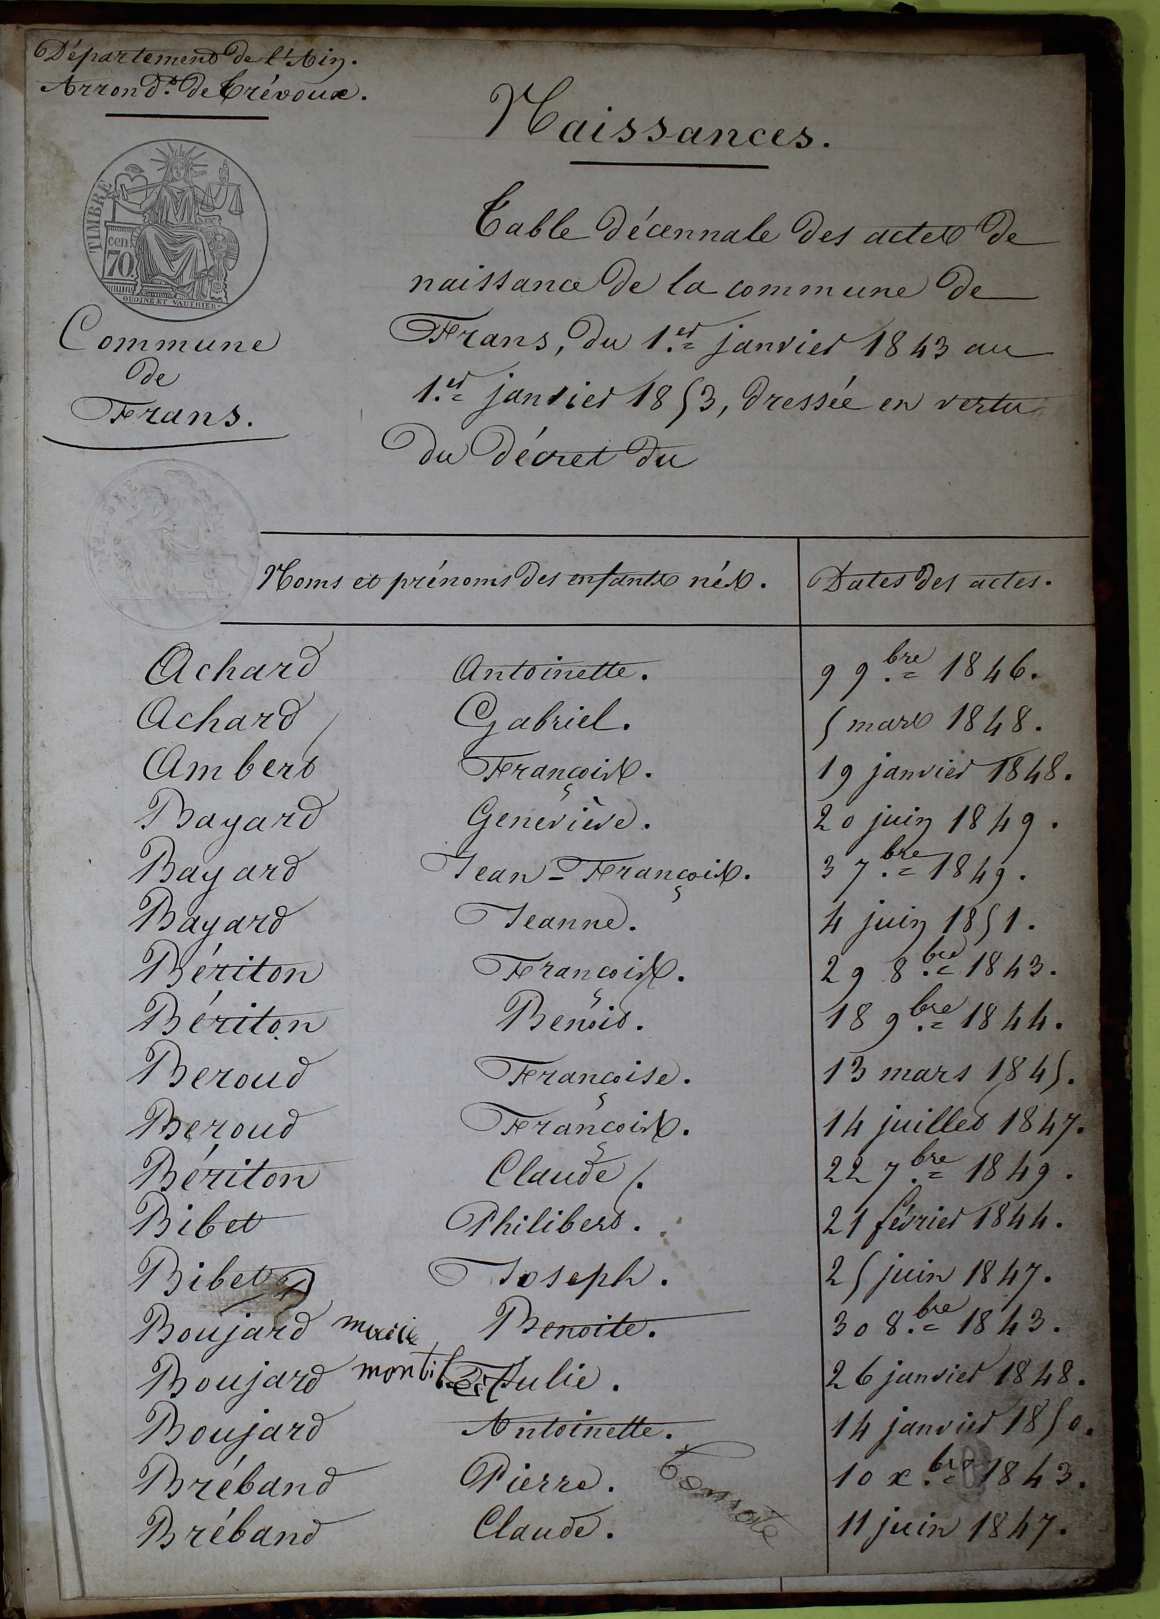 Département de l'Ain.
Arrond.t de Trévoux.
Naissances.
TIMBRE
cen
70
OUDINÉ ET VAUTHIER
Commune
de
Frans.
Table décennale des actes de
naissance de la commune de
Frans, du 1.er janvier 1843 au
1.er janvier 1853, dressée en vertu
du décret du
Noms et prénoms des enfants nés. Dates des actes.
Achard Antoinette. 9 9.bre 1846.
Achard Gabriel. 5 mars 1848.
Ambert François. 19 janvier 1848.
Bayard Geneviève. 20 juin 1849.
Bayard Jean-François. 3 7.bre 1849.
Bayard Jeanne. 4 juin 1851.
Bériton François. 29 8.bre 1843.
Bériton Benoit. 18 9.bre 1844.
Beroud Françoise. 13 mars 1845.
Beroud François. 14 juillet 1847.
Bériton Claude. 22 7.bre 1849.
Bibet Philibert. 21 février 1844.
Bibet Joseph. 25 juin 1847.
Boujard marie Benoite. 30 8.bre 1843.
Boujard Julie. 26 janvier 1848.
Boujard Antoinette. 14 janvier 1850.
Bréband Pierre. 10 x.bre 1843.
Bréband Claude. 11 juin 1847.